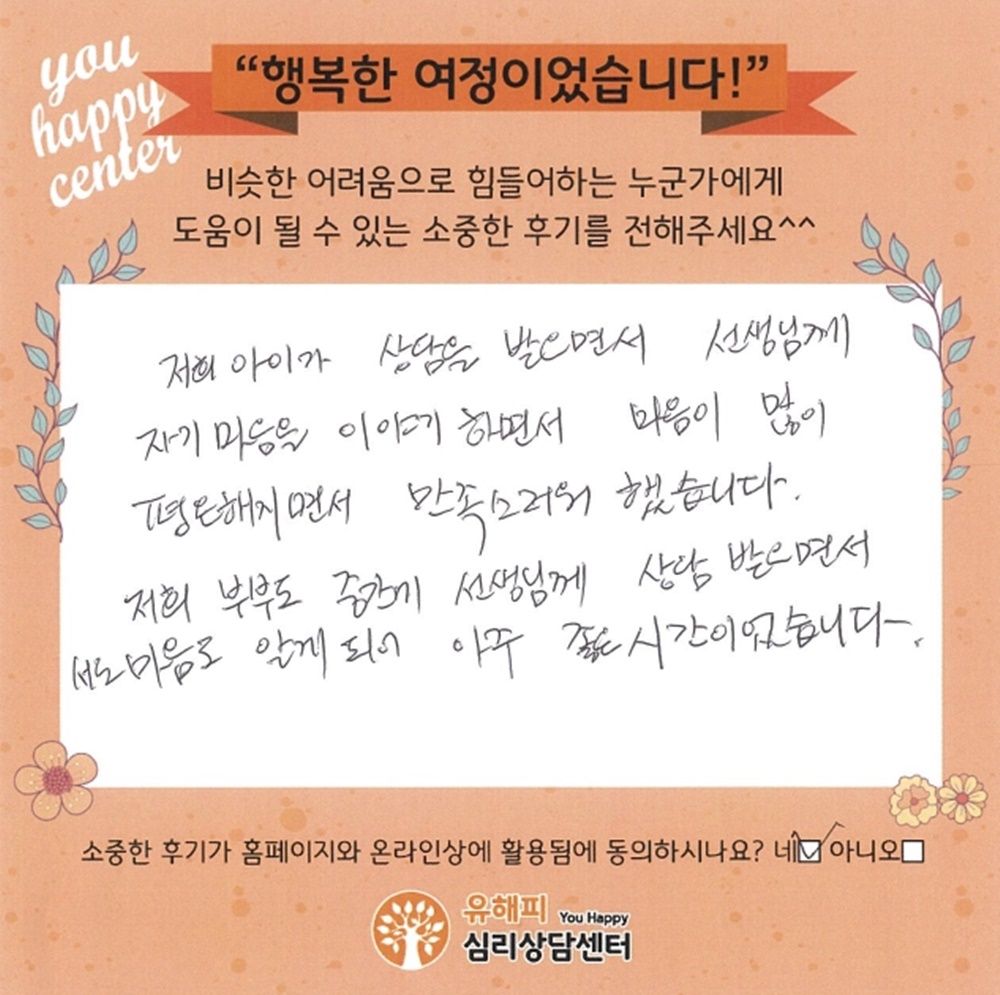 you
happy
center
“행복한 여정이었습니다!”
비슷한 어려움으로 힘들어하는 누군가에게
도움이 될 수 있는 소중한 후기를 전해주세요^^
저희 아이가 상담을 받으면서 선생님께
자기 마음을 이야기 하면서 마음이 많이
평온해지면서 만족스러워 했습니다.
저희 부부도 선생님께 상담 받으면서
마음도 알게 되어 아주 좋은 시간이었습니다.
소중한 후기가 홈페이지와 온라인상에 활용됨에 동의하시나요? 네☑ 아니오□
유해피 You Happy
심리상담센터